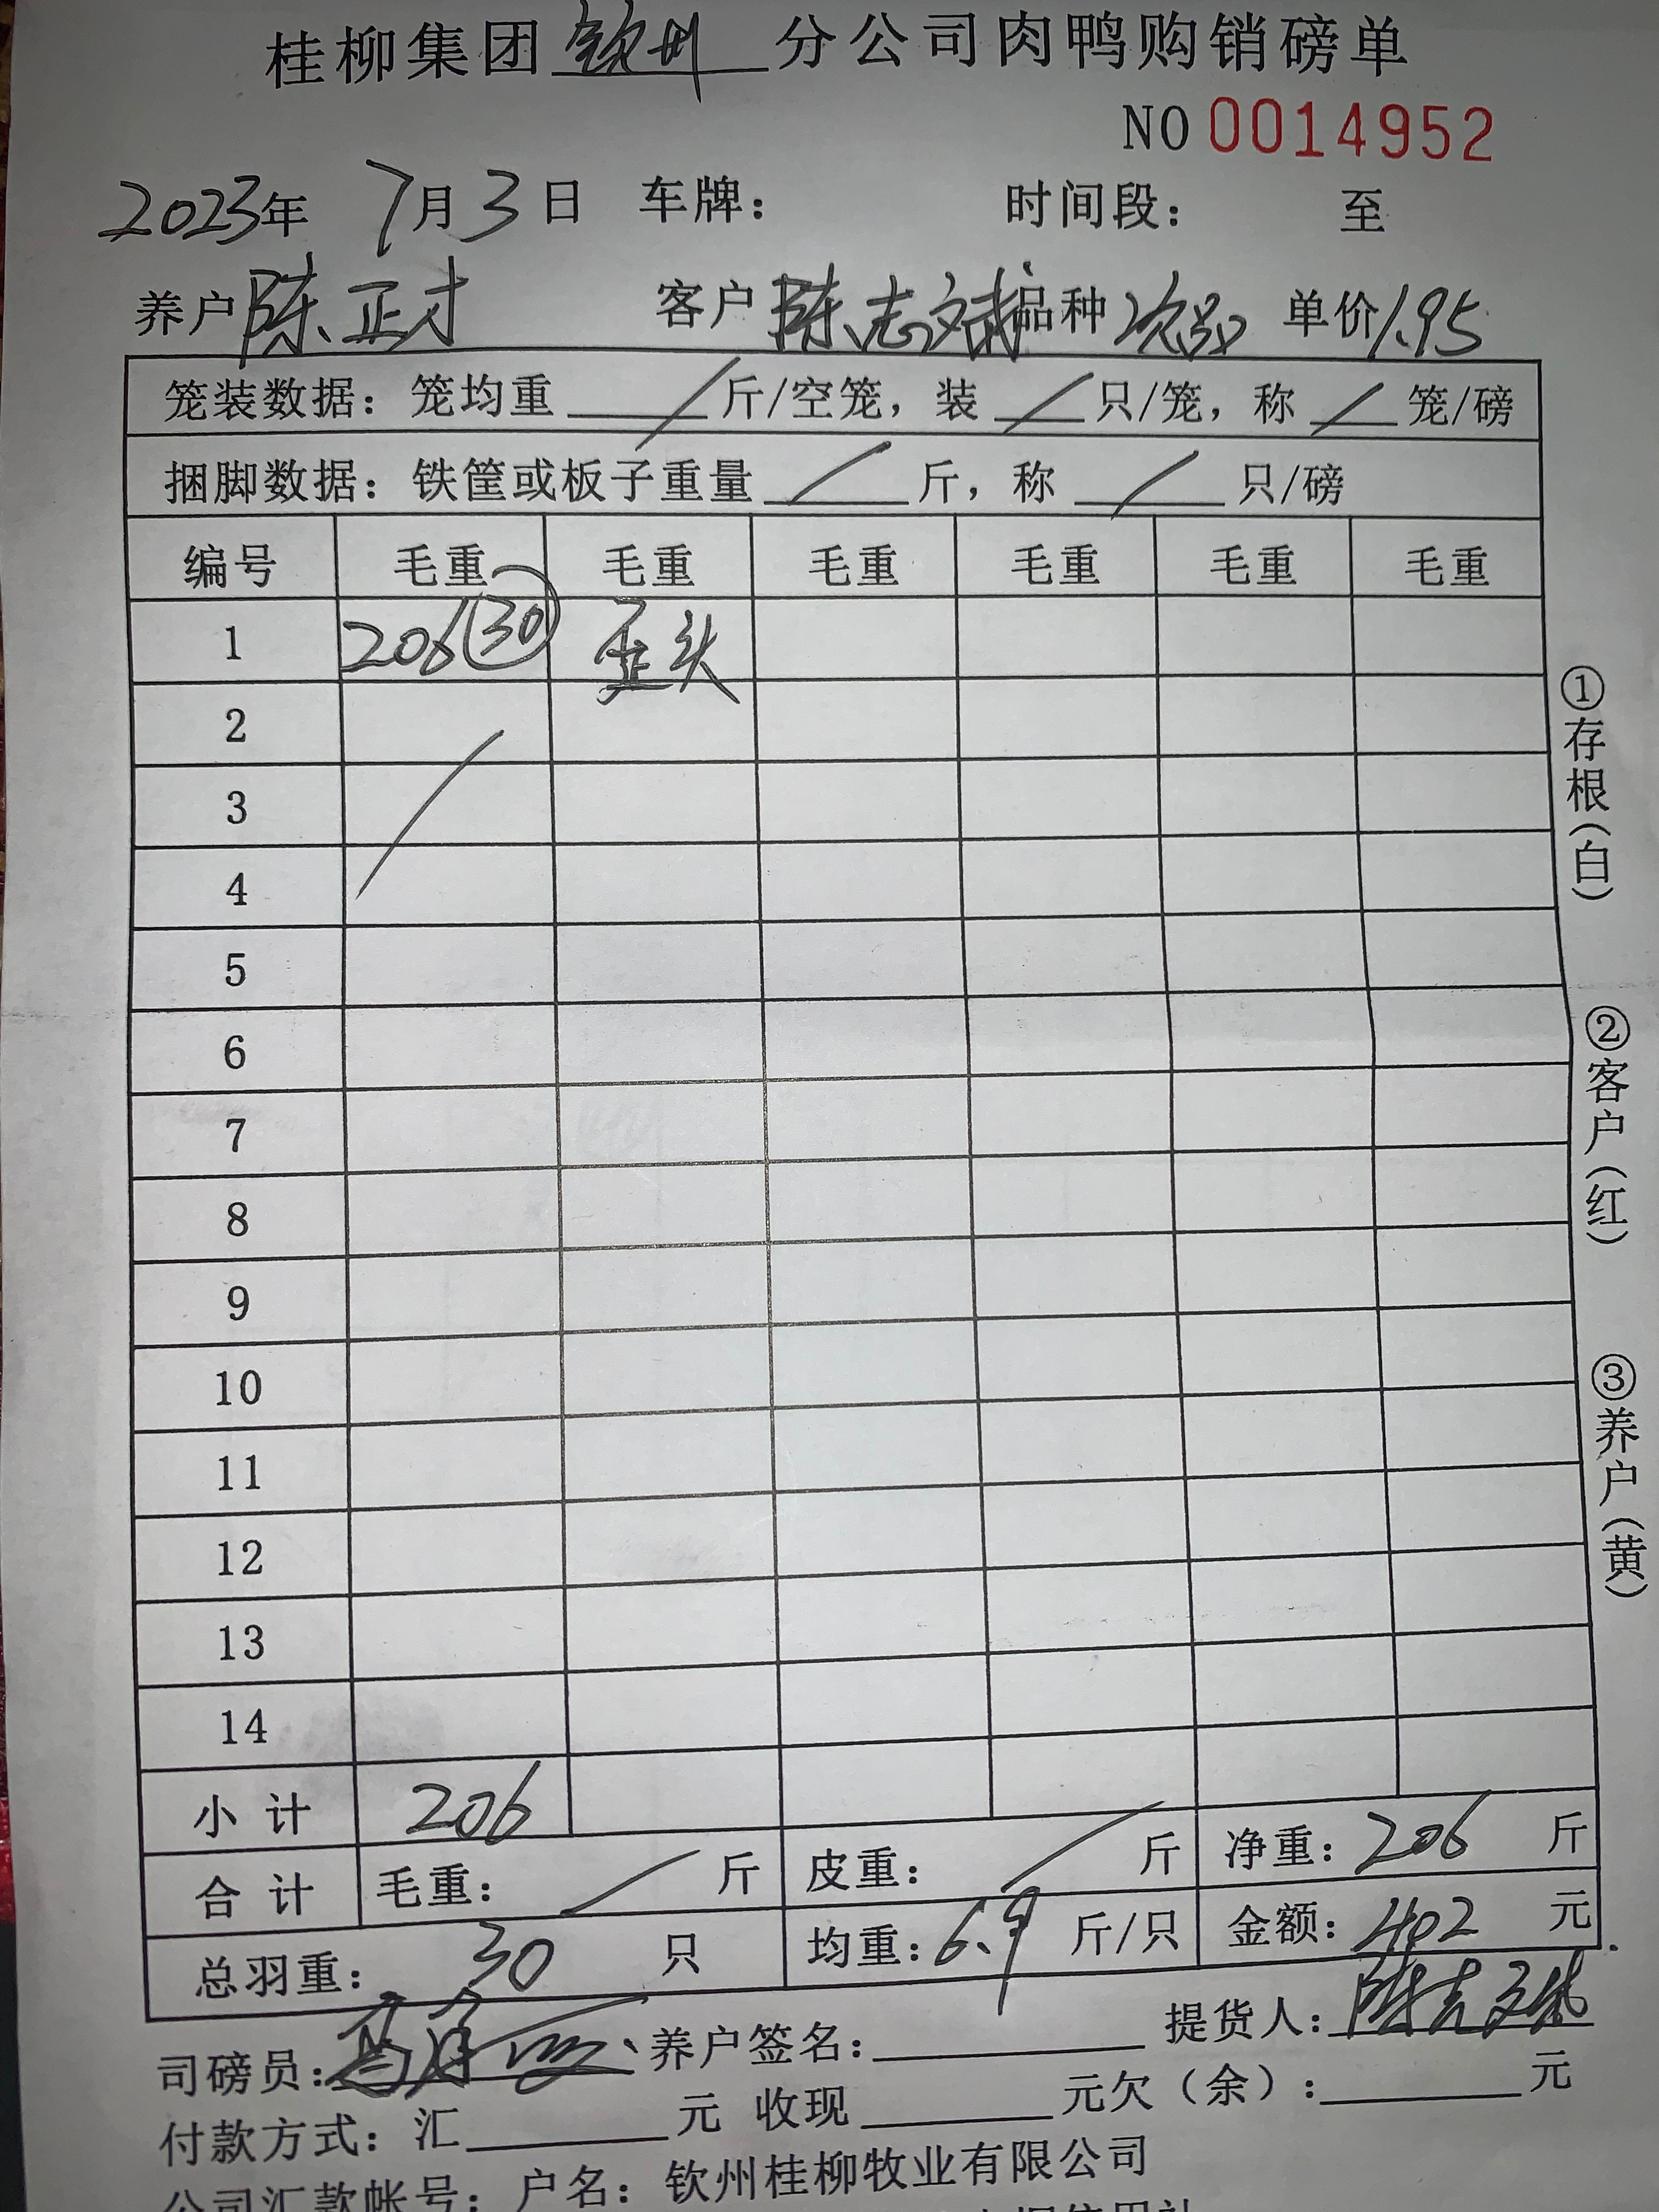 桂柳集团 钦州 分公司肉鸭购销磅单
NO 0014952
2023年 7月 3日 车牌： 时间段： 至
养户 陈正才 客户 陈志文 品种 次品 单价 1.95
笼装数据：笼均重 / 斤/空笼，装 / 只/笼，称 / 笼/磅
捆脚数据：铁筐或板子重量 / 斤，称 / 只/磅
编号 毛重 毛重 毛重 毛重 毛重 毛重
1 206 30 歪头
2
3
4
5
6
7
8
9
10
11
12
13
14
小计 206
合计 毛重： / 斤 皮重： / 斤 净重：206 斤
总羽重： 30 只 均重：6.9 斤/只 金额：402 元
司磅员： 养户签名： 提货人：陈志文
付款方式：汇 元 收现 元欠（余）： 元
公司汇款帐号：户名：钦州桂柳牧业有限公司
①存根（白）
②客户（红）
③养户（黄）